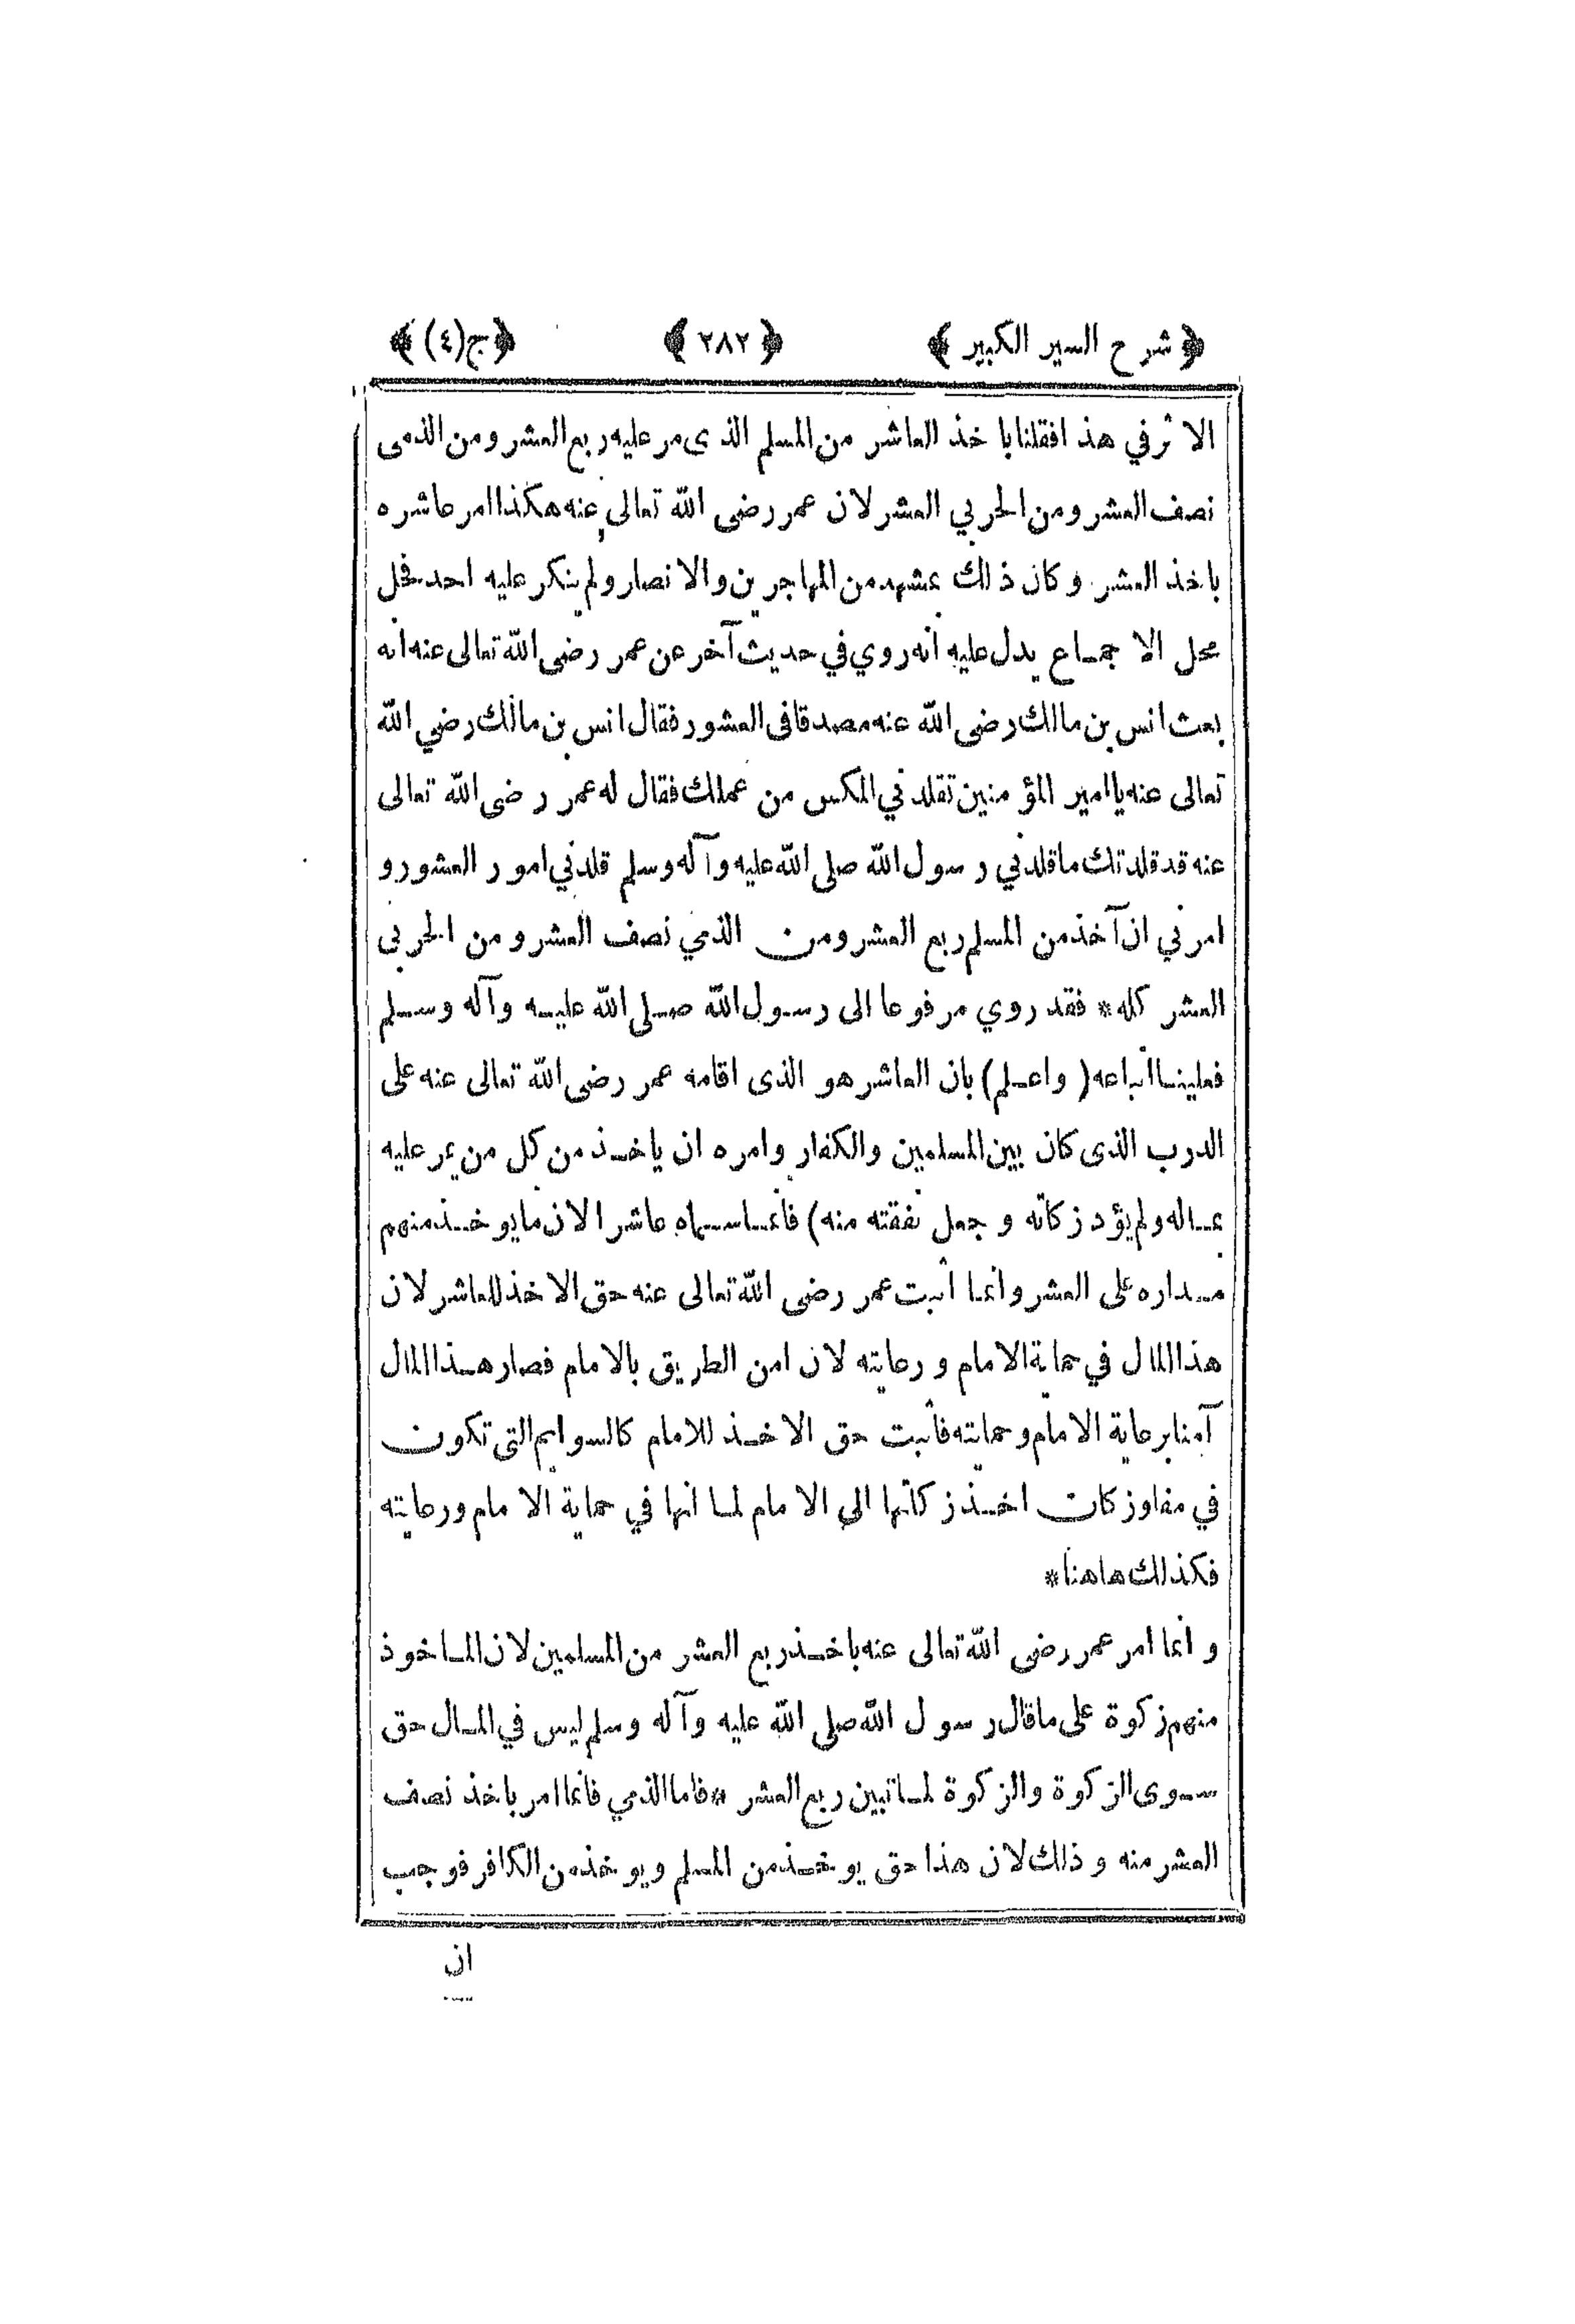 ﴿ شرح السير الكبير ﴾ ﴿ ٢٨٢ ﴾ ﴿ ج (٤) ﴾
الاثر في هذا فقلنا باخذ العاشر من المسلم الذى مر عليه ربع العشر ومن الذمى
نصف العشر ومن الحربي العشر لان عمر رضى الله تعالى عنه هكذا امر عاشره
باخذ العشر وكان ذلك بمشهد من المهاجرين والانصار ولم ينكر عليه احد فحل
محل الاجماع يدل عليه انه روي في حديث آخر عن عمر رضى الله تعالى عنه انه
بعث انس بن مالك رضى الله عنه مصدقا فى العشور فقال انس بن مالك رضي الله
تعالى عنه ياامير المؤمنين تقلدني المكس من عملك فقال له عمر رضى الله تعالى
عنه قد قلدتك ماقلدني رسول الله صلى الله عليه وآله وسلم قلدني امور العشور و
امرني ان آخذ من المسلم ربع العشر ومن الذمي نصف العشر ومن الحربي
العشر كله * فقد روي مرفوعا الى رسول الله صلى الله عليه وآله وسلم
فعلينا اتباعه ( واعلم ) بان العاشر هو الذى اقامه عمر رضى الله تعالى عنه على
الدرب الذى كان بين المسلمين والكفار وامره ان ياخذ من كل من يمر عليه
بماله ولم يؤد زكاته وجعل نفقته منه ) فانما سماه عاشرا لان مايوخذ منهم
مداره على العشر وانما اثبت عمر رضى الله تعالى عنه حق الاخذ للعاشر لان
هذا المال في حماية الامام ورعايته لان امن الطريق بالامام فصار هذا المال
آمنا برعاية الامام وحمايته فاثبت حق الاخذ للامام كالسوايم التى تكون
في مفاوز كان اخذ زكاتها الى الامام لما انها في حماية الامام ورعايته
فكذلك هاهنا *
وانما امر عمر رضى الله تعالى عنه باخذ ربع العشر من المسلمين لان الماخوذ
منهم زكوة على ماقال رسول الله صلى الله عليه وآله وسلم ليس في المال حق
سوى الزكوة والزكوة لما تبين ربع العشر * فاما الذمي فانما امر باخذ نصف
العشر منه وذلك لان هذا حق يوخذ من المسلم ويوخذ من الكافر فوجب
ان